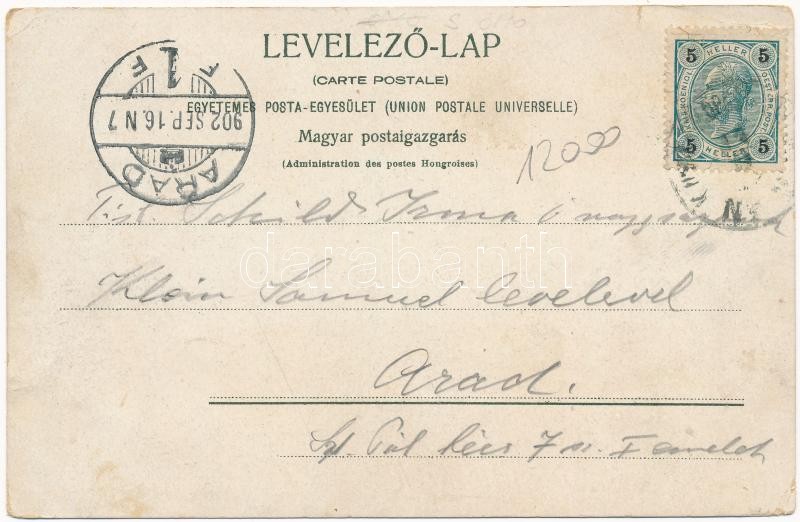 LEVELEZŐ-LAP
(CARTE POSTALE)
EGYETEMES POSTA-EGYESÜLET (UNION POSTALE UNIVERSELLE)
Magyar postaigazgarás
(Administration des postes Hongroises)
ARAD
902 SEP. 16. N 7
F 1 F
5 HELLER 5
5 HELLER 5
12000
Schild Irma ő nagysága
Klein Samuel levelével
Arad.
Pál 7 sz. I emelet
darabanth